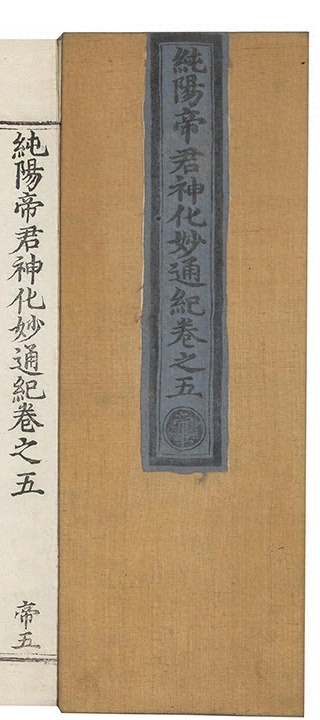 純陽帝君神化妙通紀卷之五
純陽帝君神化妙通紀卷之五
帝五